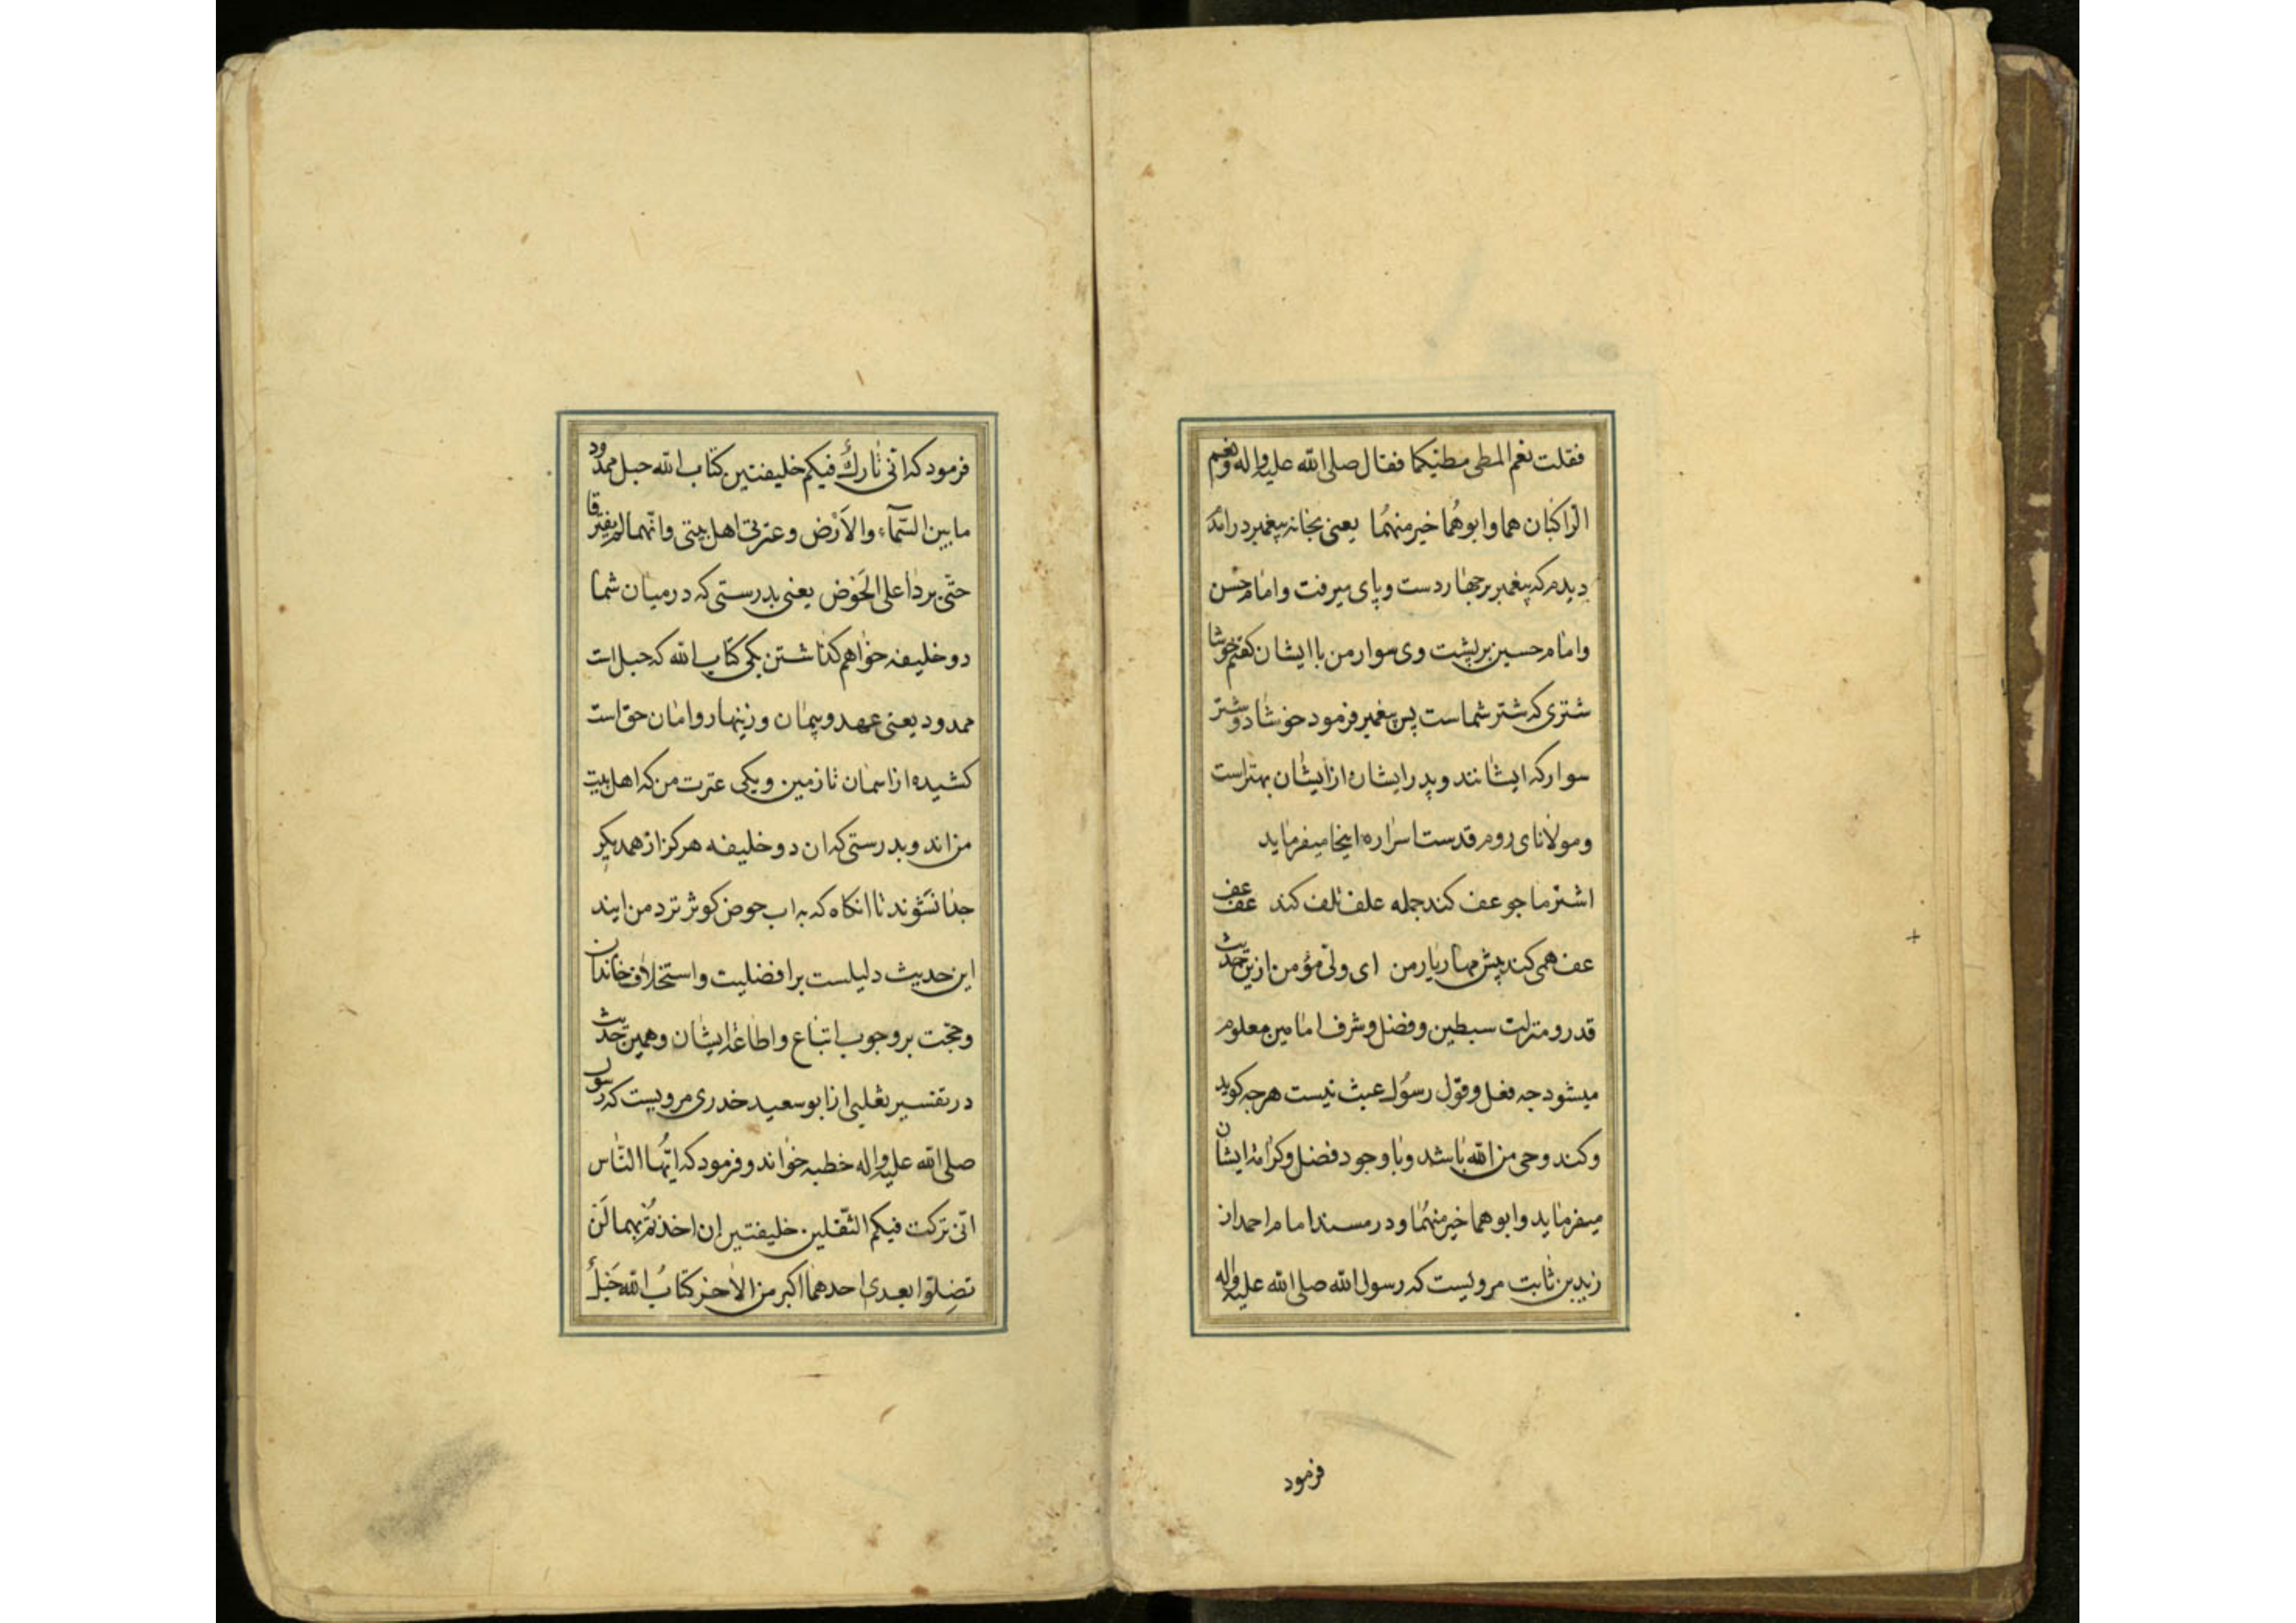 فقلت نعم المطی مطیّکما فقال صلی الله علیه واله ونعم
الراکبان هما وابوهُما خیر منهُما یعنی بخانه پیغمبر درامدم
دیدم که پیغمبر بر چهار دست و پای میرفت و امام حسن
و امام حسین بر پشت وی سوار من با ایشان گفتم خوشا
شتری که شتر شماست پس پیغمبر فرمود خوشا دو شتر
سوار که ایشانند و پدر ایشان از ایشان بهتر است
و مولانای روم قدست اسراره اینجا میفرماید
اشتر ما جو عف کند جمله علف تلف کند عف عف
عف همی کند پیش مهار یار من ای ولی مؤمن ازین حدیث
قدر و منزلت سبطین و فضل و شرف امامین معلوم
میشود جه فعل و قول رسُول عبث نیست هرجه کوید
و کند وحی من الله باشد و با وجود فضل و کرامه ایشان
میفرماید وابوهما خیر منهُما و در مسند امام احمد از
زید بن ثابت مرویست که رسول الله صلی الله علیه واله
فرمود
فرمود که انی تارکُ فیکم خلیفتین کتاب الله حبل ممدود
ما بین السّمآء والاَرْض وعترتی اهل بیتی وانّهما لم یفترقا
حتّی یردا علی الحَوْض یعنی بدرستی که در میان شما
دو خلیفه خواهم کذاشتن یکی کتاب الله که حبل است
ممدود یعنی عهد و پیمان و زینهار و امان حق است
کشیده از اسمان تا زمین و یکی عترت من که اهل بیت
من اند و بدرستی که ان دو خلیفه هرکز از همدیکر
جدا نشوند تا انکاه که به اب حوض کوثر نزد من ایند
این حدیث دلیلست بر افضلیت و استخلاف خاندان
و حجّت بر وجوب اتباع و اطاعه ایشان و همین حدیث
در تفسیر ثعلبی از ابو سعید خدری مرویست که رسول
صلی الله علیه واله خطبه خواند و فرمود که ایّها النّاس
انّی ترکت فیکم الثّقلین خلیفتین اِن اخذتُم بهما لَن
تضِلّوا بعدی احدهما اکبر من الاٰخر کتابُ الله حَبْلُ